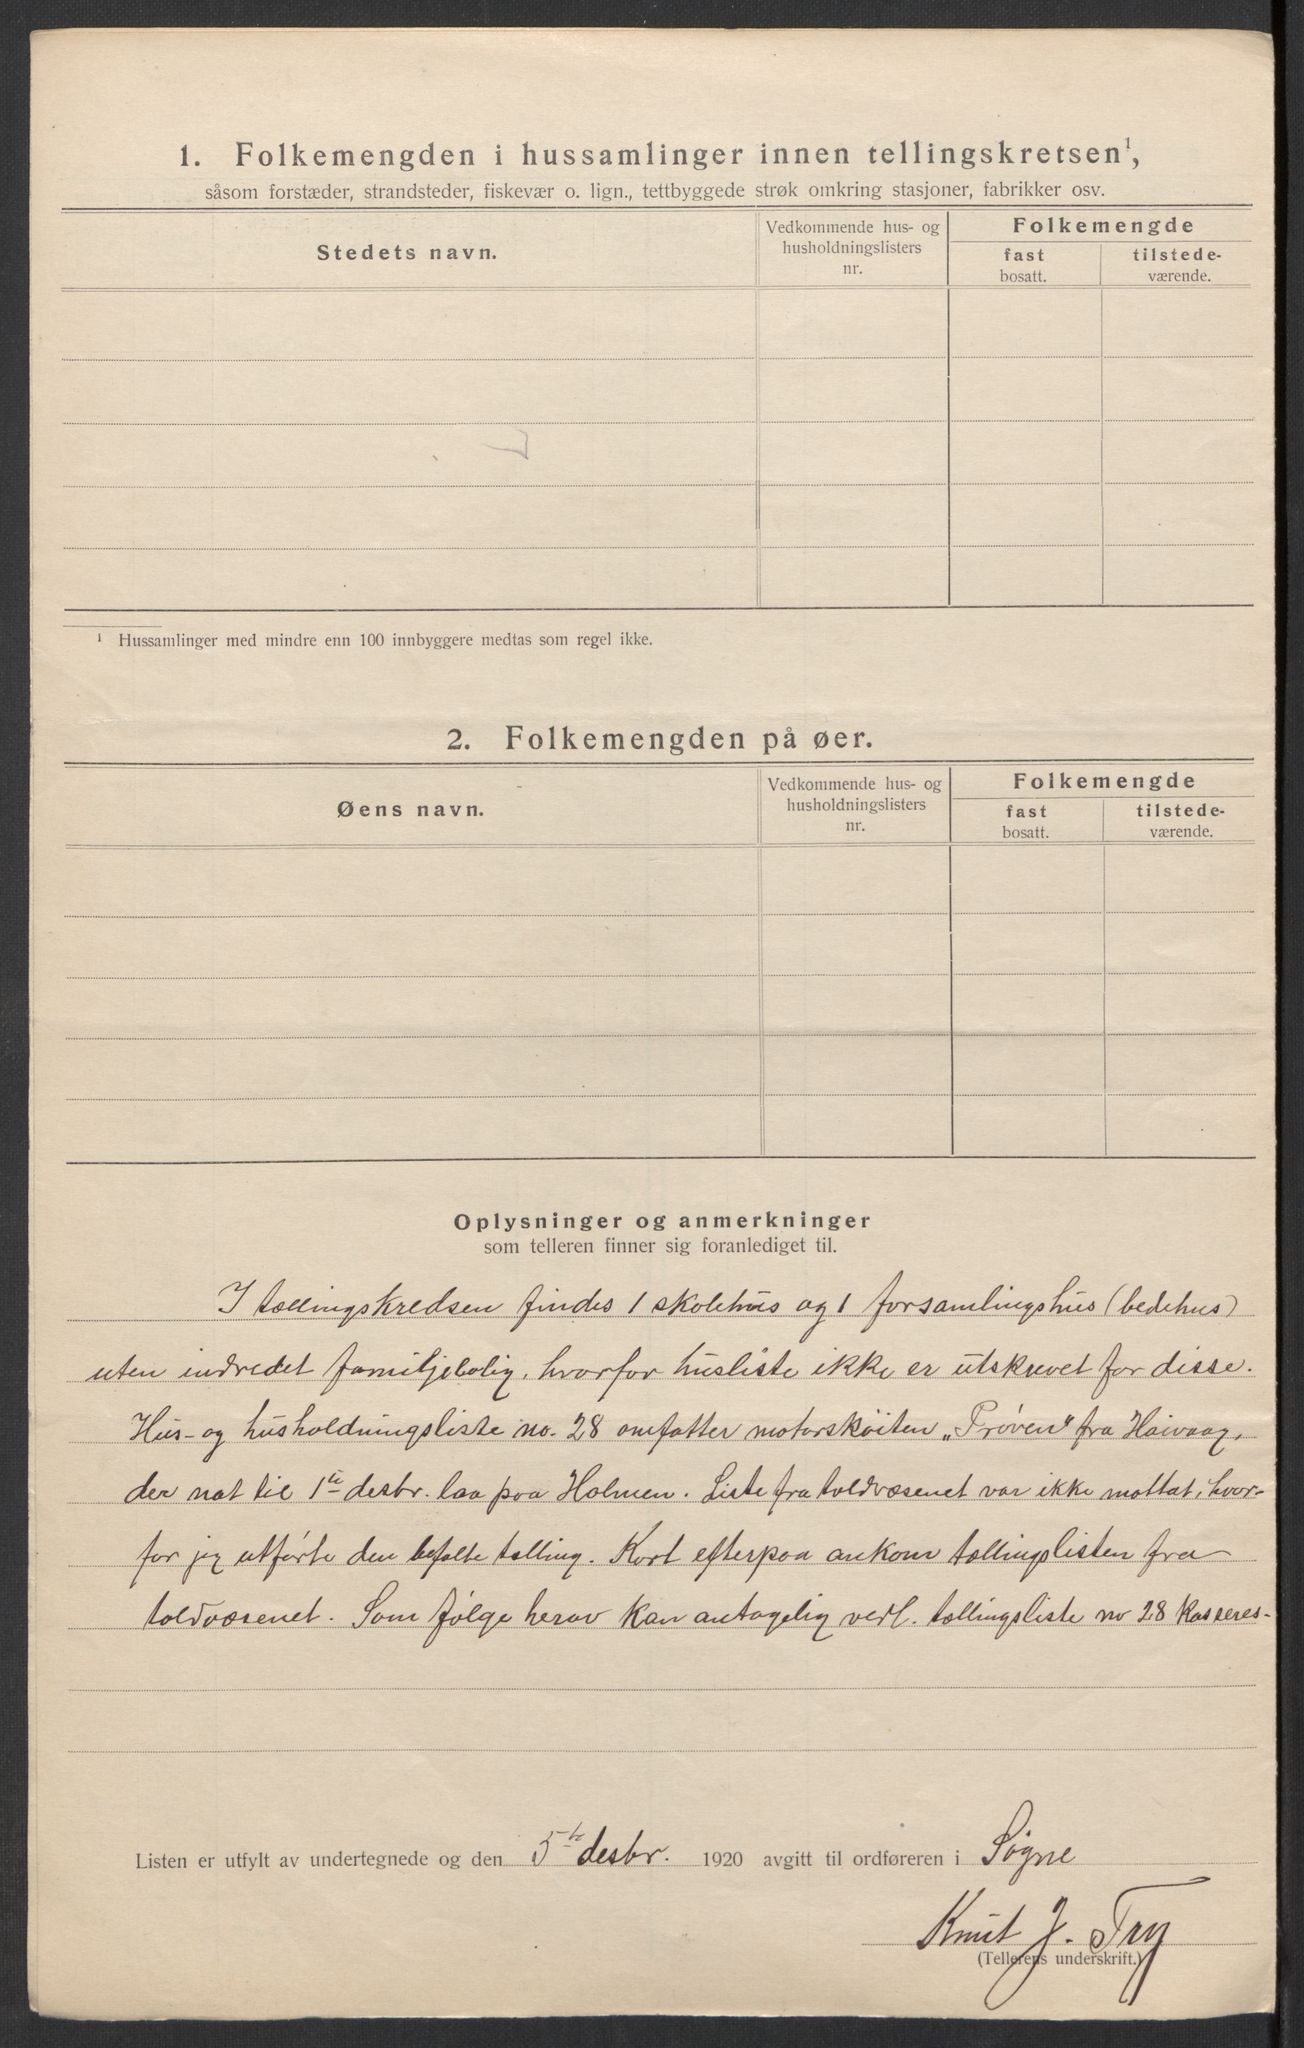 1. Folkemengden i hussamlinger innen tellingskretsen¹,
såsom forstæder, strandsteder, fiskevær o. lign., tettbyggede strøk omkring stasjoner, fabrikker osv.
Stedets navn.
Vedkommende hus- og husholdningslisters nr.
Folkemengde
fast bosatt.
tilstede- værende.
¹ Hussamlinger med mindre enn 100 innbyggere medtas som regel ikke.
2. Folkemengden på øer.
Øens navn.
Vedkommende hus- og husholdningslisters nr.
Folkemengde
fast bosatt.
tilstede- værende.
Oplysninger og anmerkninger
som telleren finner sig foranlediget til.
I tællingskredsen findes 1 skolehus og 1 forsamlingshus (bedehus)
uten indredet familjebolig, hvorfor husliste ikke er utskrevet for disse.
Hus- og husholdningsliste no. 28 omfatter motorskøiten „Prøven" fra Høivaag,
der nat til 1te desbr. laa paa Holmen. Liste fra toldvæsenet var ikke mottat, hvor-
for jeg utførte den befalte tælling. Kort efterpaa ankom tællingslisten fra
toldvæsenet. Som følge herav kan antagelig vedl. tællingsliste no 28 kasseres-
Listen er utfylt av undertegnede og den 5te desbr. 1920 avgitt til ordføreren i Søgne
Knut J. Try
(Tellerens underskrift.)